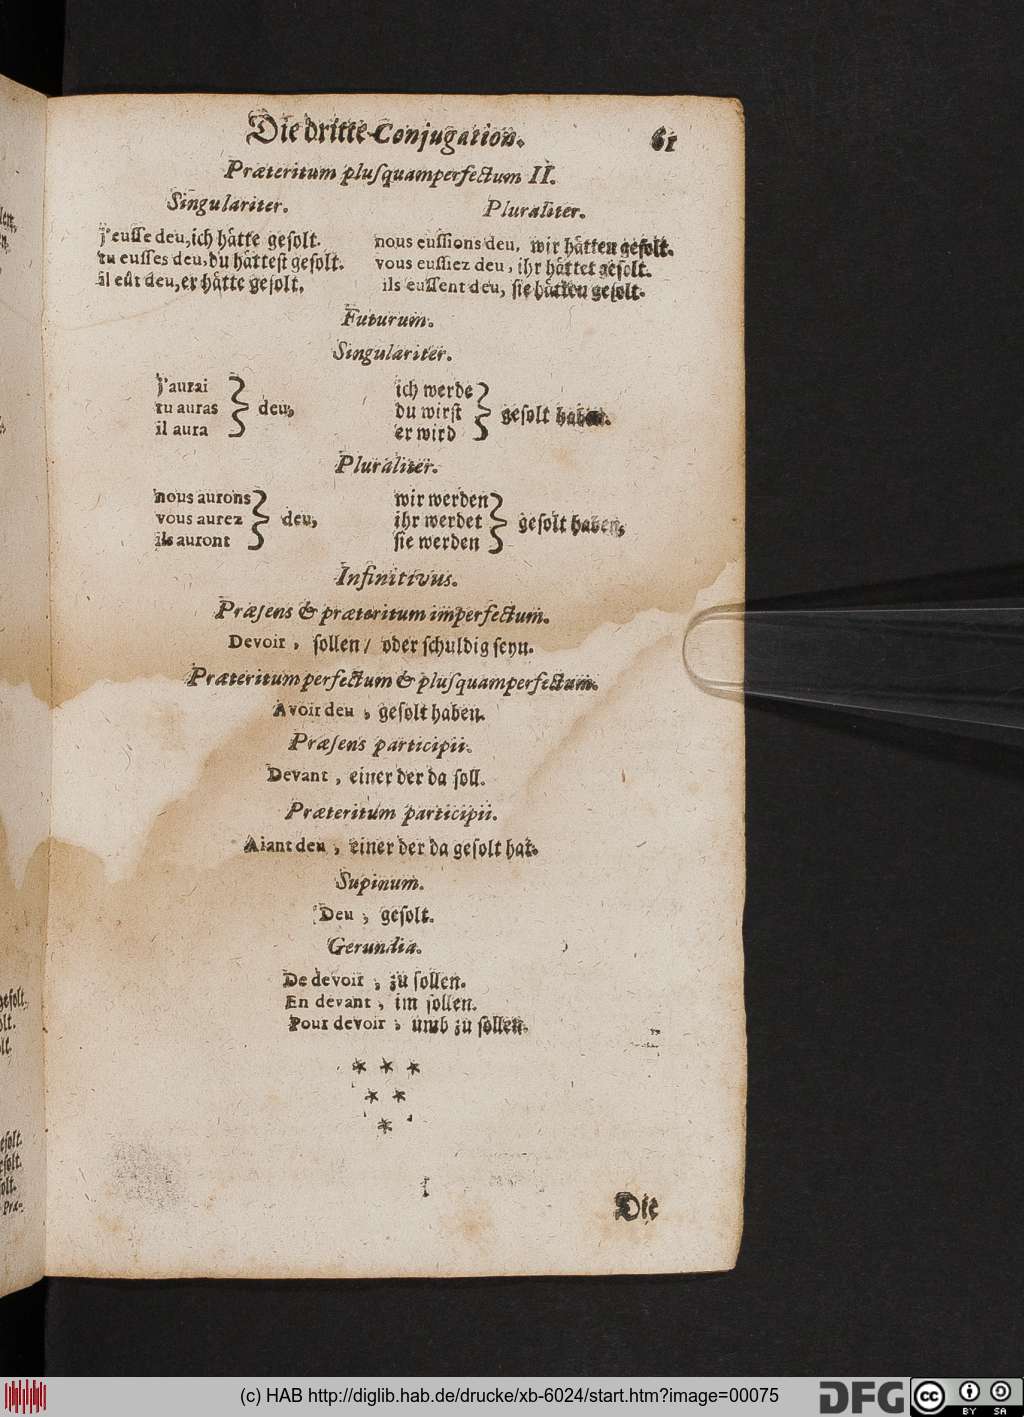 Die dritte Conjugation. 61
Præteritum pluſquamperfectum II.
Singulariter. Pluraliter.
j'euſſe deu, ich hätte geſolt. nous euſſions deu, wir hätten geſolt.
tu euſſes deu, du hätteſt geſolt. vous euſſiez deu, ihr hättet geſolt.
il eût deu, er hätte geſolt, ils euſſent deu, ſie hätten geſolt.
Futurum.
Singulariter.
j'aurai ich werde
tu auras deu, du wirſt geſolt haben.
il aura er wird
Pluraliter.
nous aurons wir werden
vous aurez deu, ihr werdet geſolt haben,
ils auront ſie werden
Infinitivus.
Præſens & præteritum imperfectum.
Devoir, ſollen / oder ſchuldig ſeyn.
Præteritum perfectum & pluſquamperfectum.
Avoir deu, geſolt haben.
Præſens participii.
Devant, einer der da ſoll.
Præteritum participii.
Aiant deu, einer der da geſolt hat.
Supinum.
Deu, geſolt.
Gerundia.
De devoir, zu ſollen.
En devant, im ſollen.
Pour devoir, umb zu ſollen.
* * *
* *
*
Die
geſolt.
olt.
lt.
eſolt.
eſolt.
olt.
Præ-
(c) HAB http://diglib.hab.de/drucke/xb-6024/start.htm?image=00075 DFG cc BY SA